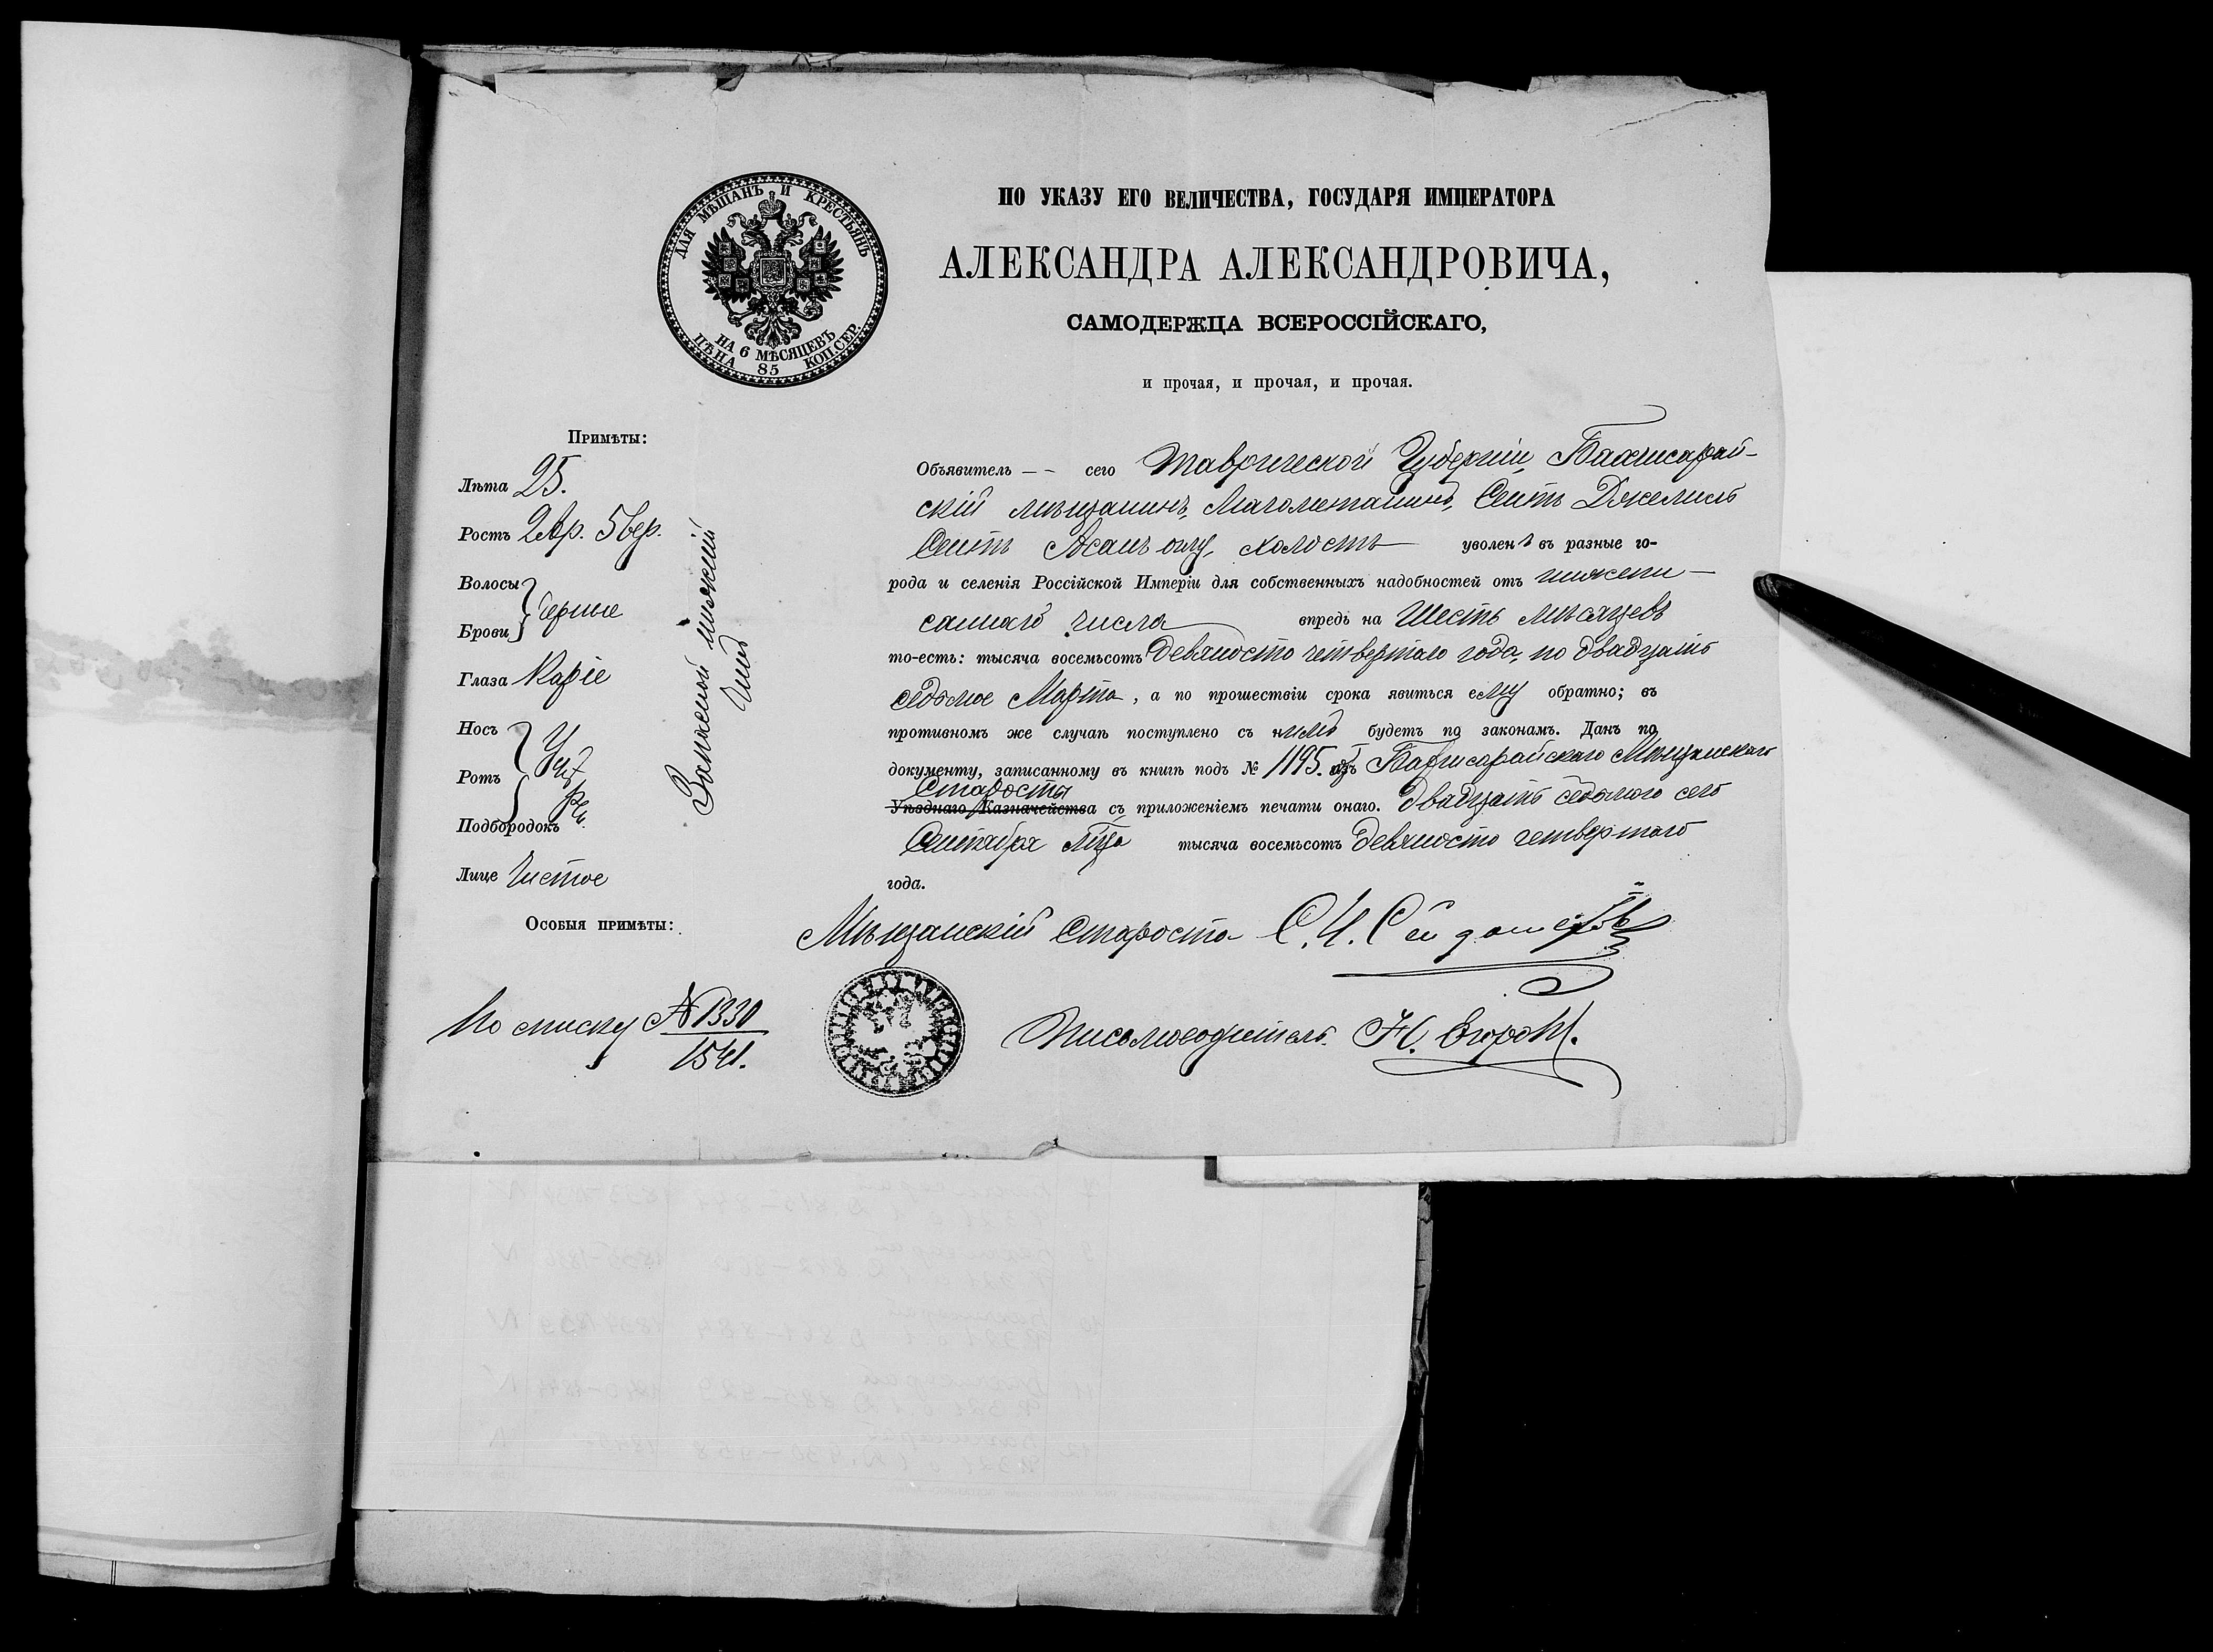 ДЛЯ МѢЩАНЪ И КРЕСТЬЯНЪ
НА 6 МѢСЯЦЕВЪ
ЦѢНА 85 КОП. СЕР.
ПО УКАЗУ ЕГО ВЕЛИЧЕСТВА, ГОСУДАРЯ ИМПЕРАТОРА
АЛЕКСАНДРА АЛЕКСАНДРОВИЧА,
САМОДЕРЖЦА ВСЕРОССІЙСКАГО,
и прочая, и прочая, и прочая.
Примѣты:
Лѣта 25.
Ростъ 2 Ар. 5 вер.
Волосы
Брови } Черные
Глаза Каріе
Носъ
Ротъ } Умѣ
Подбородокъ рен.
Лице Чистое
Особыя примѣты:
По списку № 1330
1541.
Запасной нижній
чинъ
Объявитель -- сего Таврической Губерніи, Бахчисарай-
скій мѣщанинъ, Магометанинъ, Сеитъ Джелиль
Сеитъ Асанъ оглу, холостъ уволенъ въ разные го-
рода и селенія Россійской Имперіи для собственныхъ надобностей отъ нижепи-
саннаго числа впредь на Шесть мѣсяцевъ
то-есть: тысяча восемьсотъ девяносто четвертаго года, по двадцать
седьмое Марта, а по прошествіи срока явиться ему обратно; въ
противномъ же случаѣ поступлено съ нимъ будетъ по законамъ. Данъ по
документу, записанному въ книгѣ подъ № 1195. отъ Бахчисарайскаго Мѣщанскаго
Старосты
Уѣзднаго Казначейства съ приложеніемъ печати онаго. Двадцать седьмого сего
Сентября м-ца тысяча восемьсотъ девяносто четвертаго
года.
Мѣщанскій Староста С. И.
Письмоводитель Н.